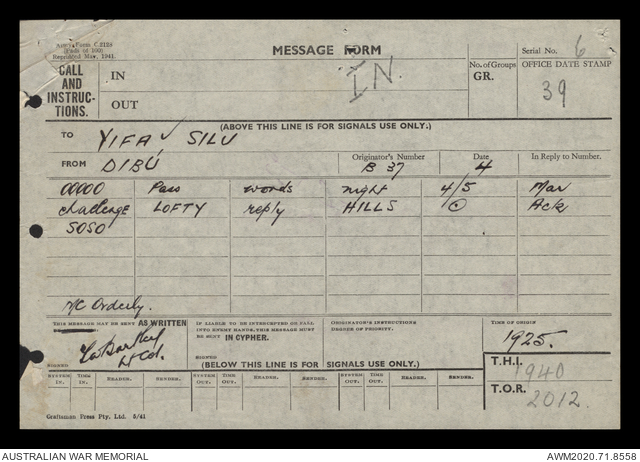 Army Form C.2128
(Pads of 100)
Reprinted May, 1941.
MESSAGE FORM
IN.
Serial No. 6
CALL AND INSTRUC-TIONS.
IN
OUT
No. of Groups
GR.
OFFICE DATE STAMP
39
(ABOVE THIS LINE IS FOR SIGNALS USE ONLY.)
TO YIFA SILU
FROM DIBU
Originator's Number B 37
Date 4
In Reply to Number.
00000 Pass words night 4/5 Mar
challenge LOFTY reply HILLS Ack
SOSO
MC Orderly.
THIS MESSAGE MAY BE SENT AS WRITTEN
IF LIABLE TO BE INTERCEPTED OR FALL INTO ENEMY HANDS, THIS MESSAGE MUST BE SENT IN CYPHER.
ORIGINATOR'S INSTRUCTIONS DEGREE OF PRIORITY.
TIME OF ORIGIN
1925.
Lt Col.
SIGNED
SIGNED
(BELOW THIS LINE IS FOR SIGNALS USE ONLY.)
T.H.I. 1940
SYSTEM IN. TIME IN. READER. SENDER. SYSTEM OUT. TIME OUT. READER. SENDER. SYSTEM OUT. TIME OUT. READER. SENDER.
T.O.R. 2012.
Craftsman Press Pty. Ltd. 5/41
AUSTRALIAN WAR MEMORIAL
AWM2020.71.8558